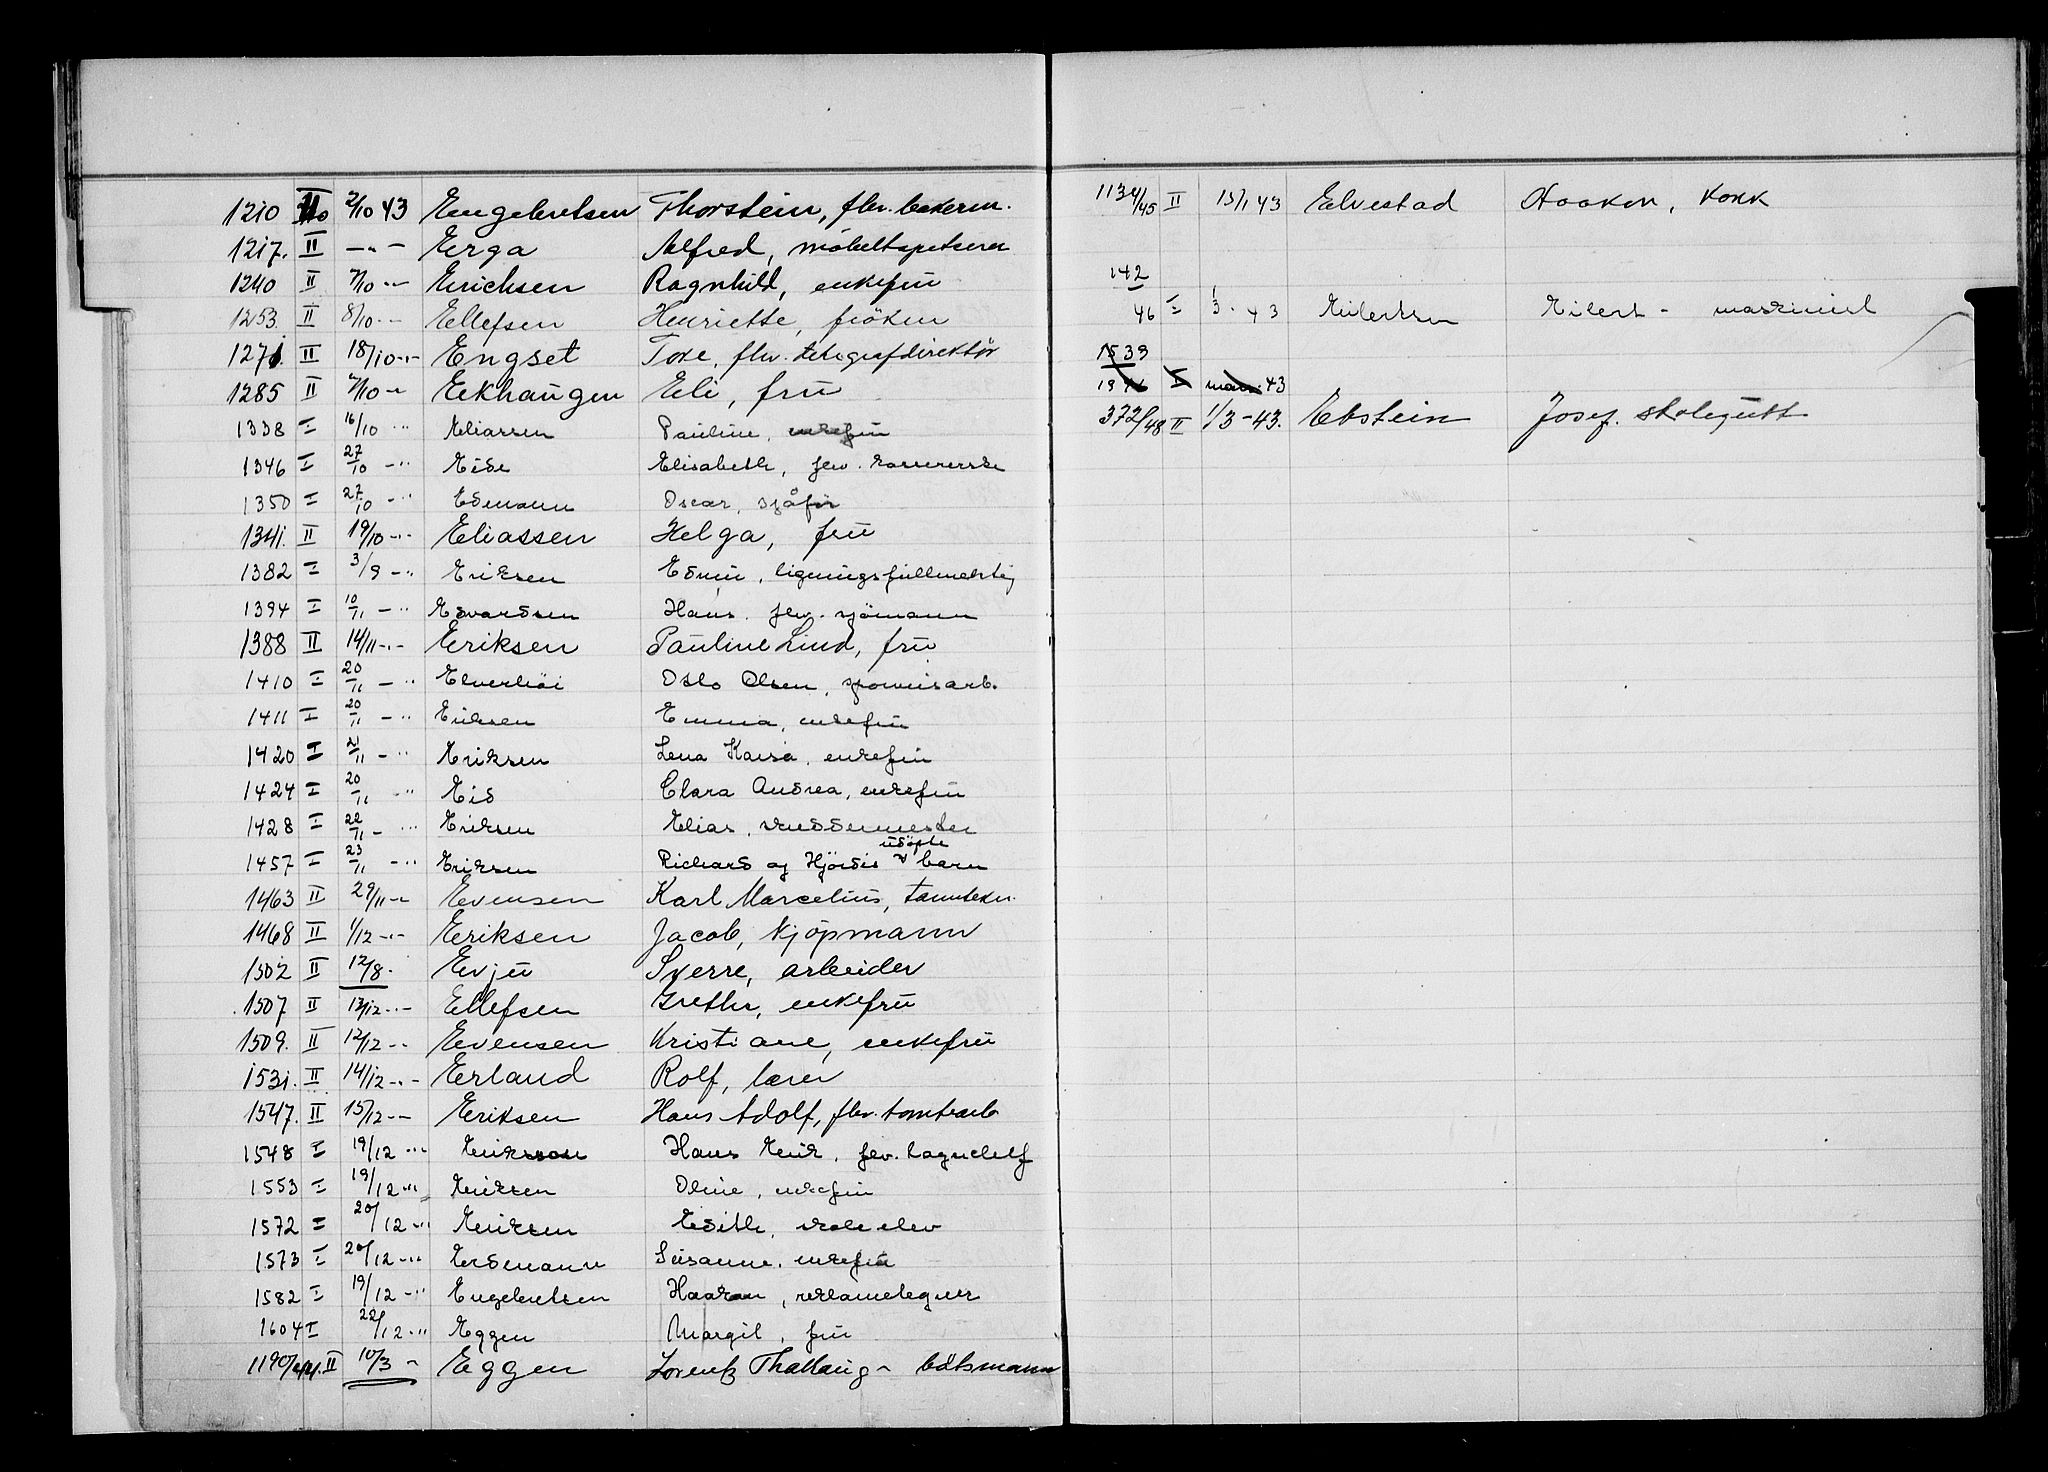 1210 II 2/10 43 Engebretsen Thorstein, fhv. bakerm.
1217. II -"- Erga Alfred, möbeltapetserer
1240 II 7/10 -"- Erichsen Ragnhild, enkefru
1253. II 8/10 -"- Ellefsen Henriette, fröken
1271. II 18/10 -"- Engset Tore, fhv. telegrafdirektör
1285 II /10 -"- Eekhaugen Eli, fru
1338 I 16/10 -"- Eliassen Pauline, enkefru
1346 I 27/10 -"- Eide Elisabeth, fhv. kassererske
1350 I 27/10 -"- Edmann Oscar, sjåför
1341. II 19/10 -"- Eliassen Helga, fru
1382 I 3/9 -"- Eriksen Edvin, ligningsfullmektig
1394 I 10/11 -"- Edvardsen Hans, fhv. sjömann
1388 II 14/11 -"- Eriksen Pauline Lind, fru
1410 I 20/11 -"- Elverhöi Otto Olsen, sponvisarb.
1411 I 20/11 -"- Eriksen Emma, enkefru
1420 I 21/11 -"- Eriksen Lena Kaisa, enkefru
1424 I 20/11 -"- Eid Clara Andrea, enkefru
1428 I 22/11 -"- Eriksen Elias, skreddermester
1457 I 23/11 -"- Eriksen Richard og Hjördis udöpte barn
1463 II 29/11 -"- Evensen Karl Marcelius, tanntekn.
1468 II 1/12 -"- Eriksen Jacob, kjöpmann
1502 II 12/8. Evju Sverre, arbeider
1507 II 13/12 -"- Ellefsen Grethe, enkefru
1509. II 12/12 -"- Evensen Kristiane, enkefru
1531. II 14/12 -"- Erland Rolf, lærer
1547. II 15/12 -"- Eriksen Hans Adolf, fhv. tomtearb
1548 I 19/12 -"- Eriksson Hans Eirik, fhv.
1553 I 19/12 -"- Eriksen Oline, enkefru
1572 I 20/12 -"- Eriksen Edith, skoleelev
1573 I 20/12 -"- Erdmann Susanne, enkefru
1582 I 19/12 -"- Engebretsen Haakon, reklametegner
1604 I 22/12 -"- Eggen Margit, fru
1190/44. II 10/3 - Eggen Lorentz Thallaug - båtsmann
1134/45 II 15/1 43 Elvestad Haakon, kokk
142
46 I 1/3 - 43 Eilertsen Eilert - maskinist
1539
1946 I mars 43
372/48 II 1/3 - 43. Ebstein Josef. skolegutt